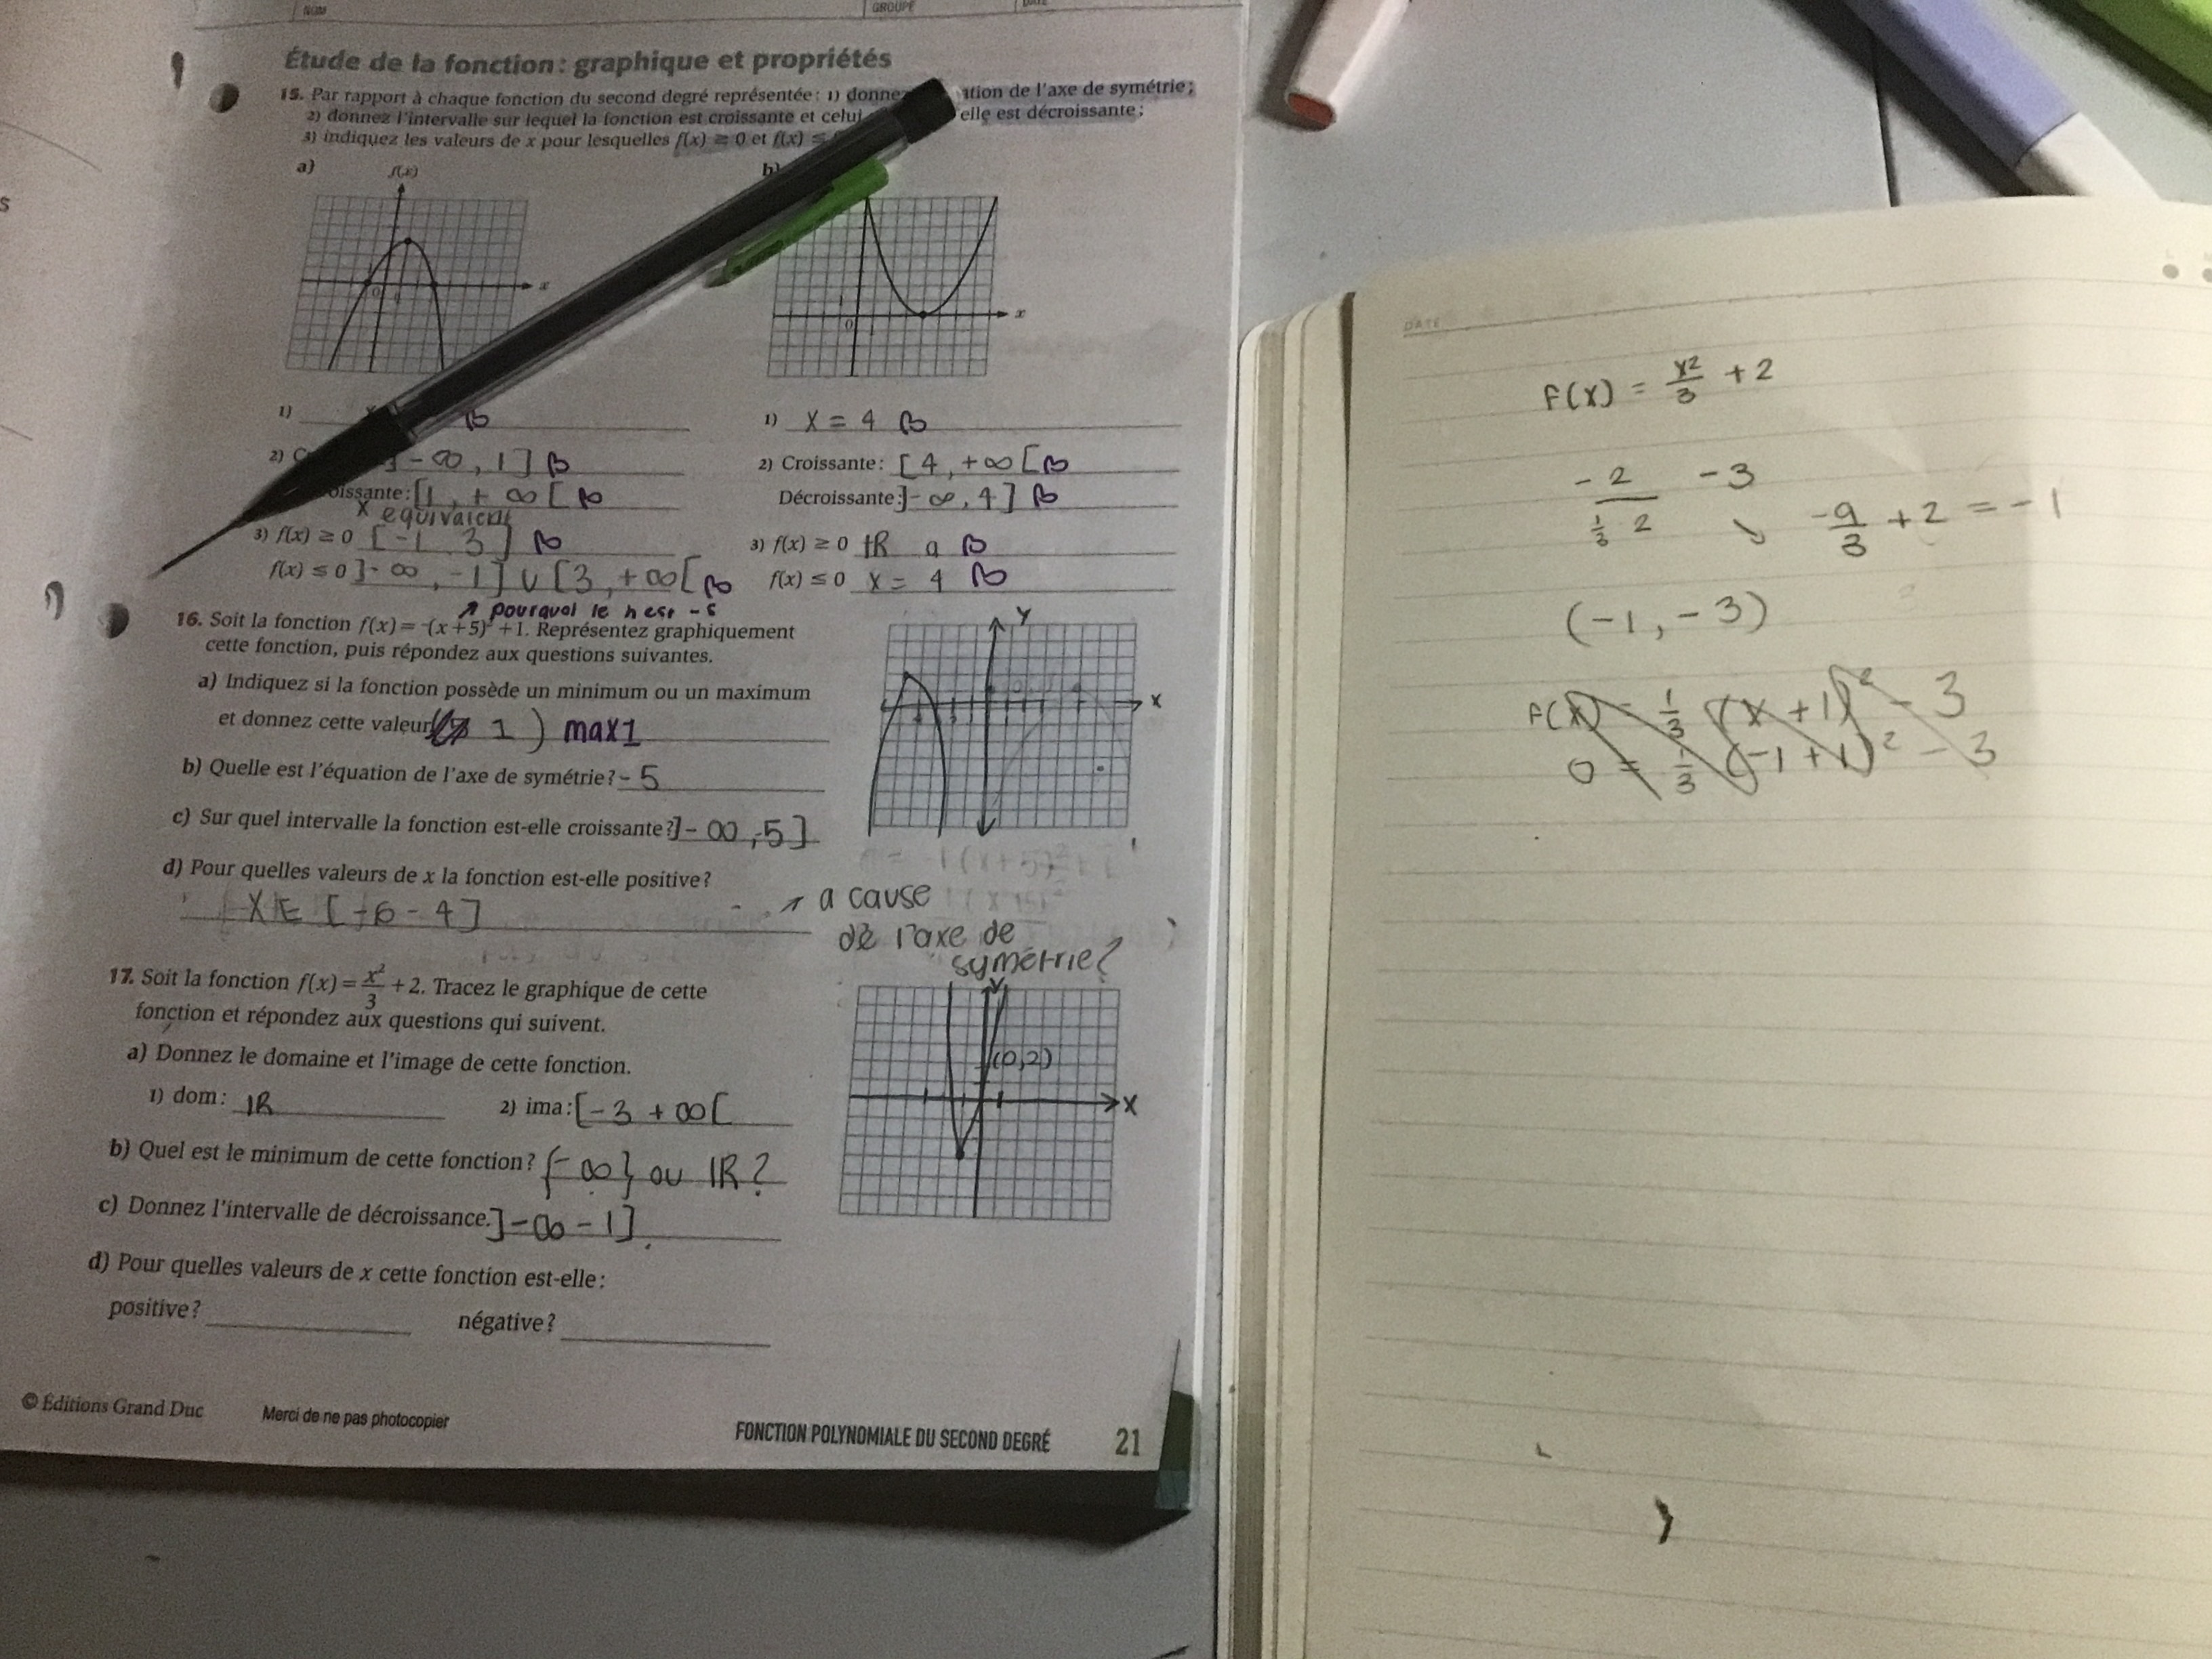 NOM
GROUPE
Étude de la fonction : graphique et propriétés
15. Par rapport à chaque fonction du second degré représentée : 1) donne ition de l'axe de symétrie ;
2) donnez l'intervalle sur lequel la fonction est croissante et celui elle est décroissante ;
3) indiquez les valeurs de x pour lesquelles f(x) ≥ 0 et f(x) ≤
a)
f(x)
0
1
x
b)
1
0
x
1)
1) X = 4
2) C ]-∞, 1]
2) Croissante : [4, +∞[
oissante : [1, + ∞[
Décroissante : ]-∞, 4]
x equivalent
3) f(x) ≥ 0 [-1 3]
3) f(x) ≥ 0 IR
f(x) ≤ 0 ]-∞, -1] ∪ [3, +∞[
f(x) ≤ 0 X = 4
↗ pourquoi le h est -5
16. Soit la fonction f(x) = -(x + 5)² + 1. Représentez graphiquement
cette fonction, puis répondez aux questions suivantes.
a) Indiquez si la fonction possède un minimum ou un maximum
et donnez cette valeur 1) max 1
b) Quelle est l'équation de l'axe de symétrie ? -5
c) Sur quel intervalle la fonction est-elle croissante ? ]-∞, -5]
d) Pour quelles valeurs de x la fonction est-elle positive ?
X ∈ [-6 -4]
Y
X
↗ a cause
de l'axe de
symétrie ?
17. Soit la fonction f(x) = x²/3 + 2. Tracez le graphique de cette
fonction et répondez aux questions qui suivent.
a) Donnez le domaine et l'image de cette fonction.
1) dom : IR
2) ima : [-3 +∞[
b) Quel est le minimum de cette fonction ? {-∞} ou IR ?
c) Donnez l'intervalle de décroissance. ]-∞ -1]
d) Pour quelles valeurs de x cette fonction est-elle :
positive ?
négative ?
Y
(0,2)
X
© Éditions Grand Duc
Merci de ne pas photocopier
FONCTION POLYNOMIALE DU SECOND DEGRÉ
21
DATE
F(X) = X²/3 + 2
-2 / 1/3 2
-3
↘ -9/3 + 2 = -1
(-1, -3)
F(X) = 1/3 (X + 1)² - 3
0 = 1/3 (-1 + 1)² - 3